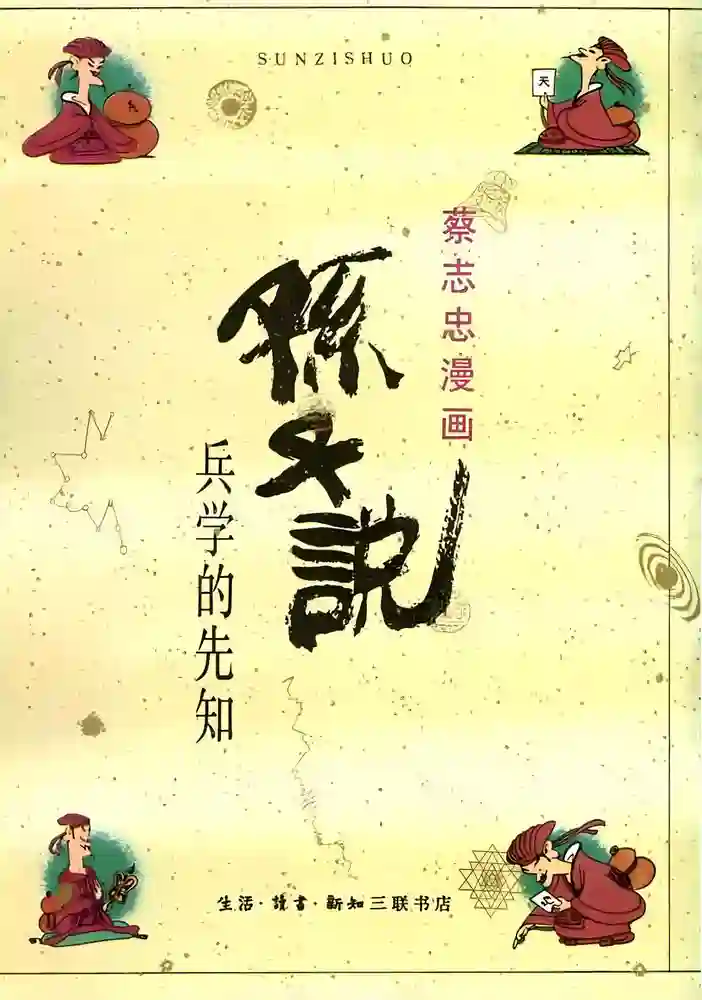 SUNZISHUO
天
蔡志忠漫画
孫子說
兵学的先知
生活·讀書·新知三联书店